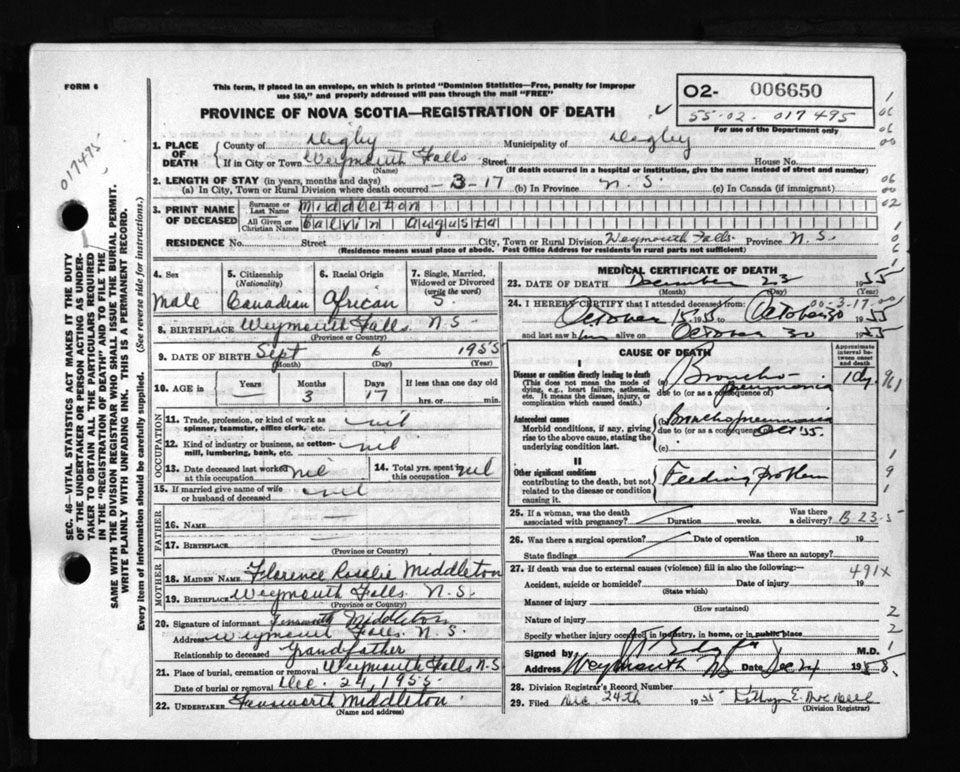 FORM 6
This form, if placed in an envelope, on which is printed "Dominion Statistics—Free, penalty for improper
use $50," and properly addressed will pass through the mail "FREE"
PROVINCE OF NOVA SCOTIA—REGISTRATION OF DEATH
O2- 006650
55-02- 017495
For use of the Department only
017495
SEC. 46—VITAL STATISTICS ACT MAKES IT THE DUTY
OF THE UNDERTAKER OR PERSON ACTING AS UNDER-
TAKER TO OBTAIN ALL THE PARTICULARS REQUIRED
IN THE "REGISTRATION OF DEATH" AND TO FILE THE
SAME WITH THE DIVISION REGISTRAR WHO SHALL ISSUE THE BURIAL PERMIT.
WRITE PLAINLY WITH UNFADING INK. THIS IS A PERMANENT RECORD.
Every item of information should be carefully supplied. (See reverse side for instructions.)
1. PLACE OF DEATH
County of Digby Municipality of Digby
If in City or Town Weymouth Falls Street House No.
(Name) (If death occurred in a hospital or institution, give the name instead of street and number)
2. LENGTH OF STAY (in years, months and days)
(a) In City, Town or Rural Division where death occurred -3-17 (b) In Province N.S. (c) In Canada (if immigrant)
3. PRINT NAME OF DECEASED
Surname or Last Name Middleton
All Given or Christian Names Calvin Augusta
RESIDENCE No. Street City, Town or Rural Division Weymouth Falls Province N.S.
(Residence means usual place of abode. Post Office Address for residents in rural parts not sufficient)
4. Sex 5. Citizenship (Nationality) 6. Racial Origin 7. Single, Married, Widowed or Divorced (write the word)
Male Canadian African S.
8. BIRTHPLACE Weymouth Falls N.S.
(Province or Country)
9. DATE OF BIRTH Sept 6 1955
(Month) (Day) (Year)
10. AGE in Years Months Days If less than one day old
— 3 17 hrs. or min.
OCCUPATION
11. Trade, profession, or kind of work as spinner, teamster, office clerk, etc. nil
12. Kind of industry or business, as cotton-mill, lumbering, bank, etc. nil
13. Date deceased last worked at this occupation nil 14. Total yrs. spent in this occupation nil
15. If married give name of wife or husband of deceased nil
FATHER
16. NAME —
17. BIRTHPLACE —
(Province or Country)
MOTHER
18. MAIDEN NAME Florence Roselie Middleton
19. BIRTHPLACE Weymouth Falls N.S.
(Province or Country)
20. Signature of informant Middleton
Address Weymouth Falls. N.S.
Relationship to deceased Grandfather
21. Place of burial, cremation or removal Weymouth Falls N.S
Date of burial or removal Dec. 24, 1955
22. UNDERTAKER Farnsworth Middleton
(Name and address)
MEDICAL CERTIFICATE OF DEATH
23. DATE OF DEATH December 23 1955
(Month) (Day) (Year)
00-3-17-00
24. I HEREBY CERTIFY that I attended deceased from
October 15 1955 to October 30 1955
and last saw him alive on October 30 1955
CAUSE OF DEATH Approximate interval between onset and death
I
Disease or condition directly leading to death (a) Broncho-pneumonia 1 dy.
(This does not mean the mode of dying, e.g., heart failure, asthenia, etc. It means the disease, injury, or complication which caused death.)
due to (or as a consequence of)
Antecedent causes Bronchopneumonia Oct 55.
Morbid conditions, if any, giving rise to the above cause, stating the underlying condition last.
due to (or as a consequence of)
(c)
II
Other significant conditions Feeding problem
contributing to the death, but not related to the disease or condition causing it.
25. If a woman, was the death associated with pregnancy? Duration weeks. Was there a delivery? B-23-5
26. Was there a surgical operation? Date of operation 19
State findings Was there an autopsy?
27. If death was due to external causes (violence) fill in also the following:— 491X
Accident, suicide or homicide? Date of injury 19
(State which)
Manner of injury
(How sustained)
Nature of injury
Specify whether injury occurred in industry, in home, or in public place
Signed by M.D.
Address Weymouth NS Date Dec 24 1955
28. Division Registrar's Record Number
29. Filed Dec. 24th 1955
(Division Registrar)